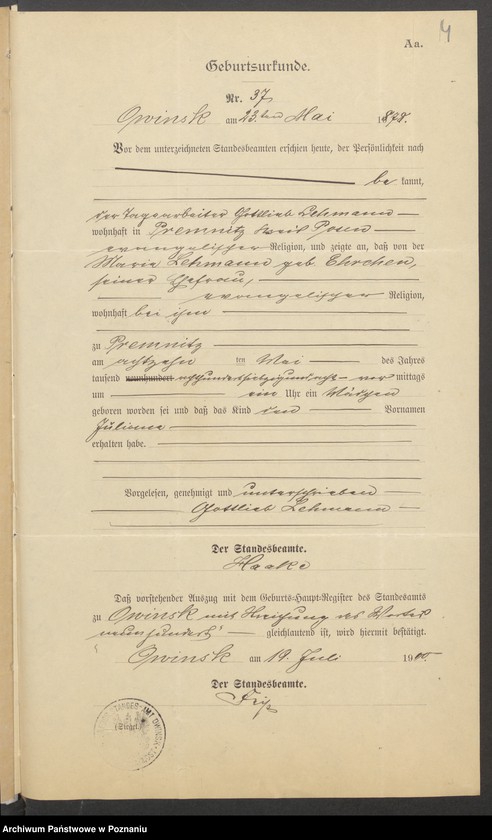 4
Aa.
Geburtsurkunde.
Nr. 37
Owinsk am 23.ten Mai 1878.
Vor dem unterzeichneten Standesbeamten erschien heute, der Persönlichkeit nach
be kannt,
der Tagearbeiter Gottlieb Lehmann
wohnhaft in Premnitz Kreis Posen
evangelischer Religion, und zeigte an, daß von der
Marie Lehmann geb Ehrchen,
seiner Ehefrau,
evangelischer Religion,
wohnhaft bei ihm
zu Premnitz
am achtzehn ten Mai des Jahres
tausend neunhundert achthundertsiebzigundacht vor mittags
um ein Uhr ein Mädchen
geboren worden sei und daß das Kind den Vornamen
Juliane
erhalten habe.
Vorgelesen, genehmigt und unterschrieben
Gottlieb Lehmann
Der Standesbeamte.
Haake
Daß vorstehender Auszug mit dem Geburts-Haupt-Register des Standesamts
zu Owinsk mit Streichung des Wortes
"neunhundert" gleichlautend ist, wird hiermit bestätigt.
Owinsk am 19. Juli 1900.
Der Standesbeamte.
(Siegel.)
Archiwum Państwowe w Poznaniu